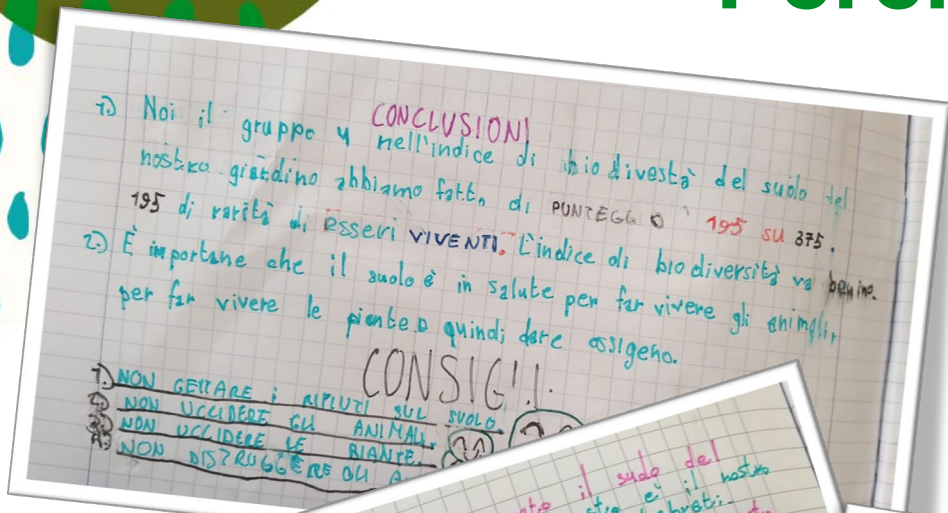 CONCLUSIONI
1.) Noi il gruppo 4 nell'indice di biodivestà del suolo del
nostro giardino abbiamo fatto di PUNTEGGIO 195 su 375.
195 di rarità di esseri VIVENTI. L'indice di biodiversità va benino.
2.) È importane che il suolo è in salute per far vivere gli animali,
per far vivere le piante e quindi dare ossigeno.
CONSIGLI:
1.) NON GETTARE i RIFIUTI SUL SUOLO.
2.) NON UCCIDERE GLI ANIMALI.
3.) NON UCCIDERE LE PIANTE.
4.) NON DISTRUGGERE GLI
il suolo del
è il nostro